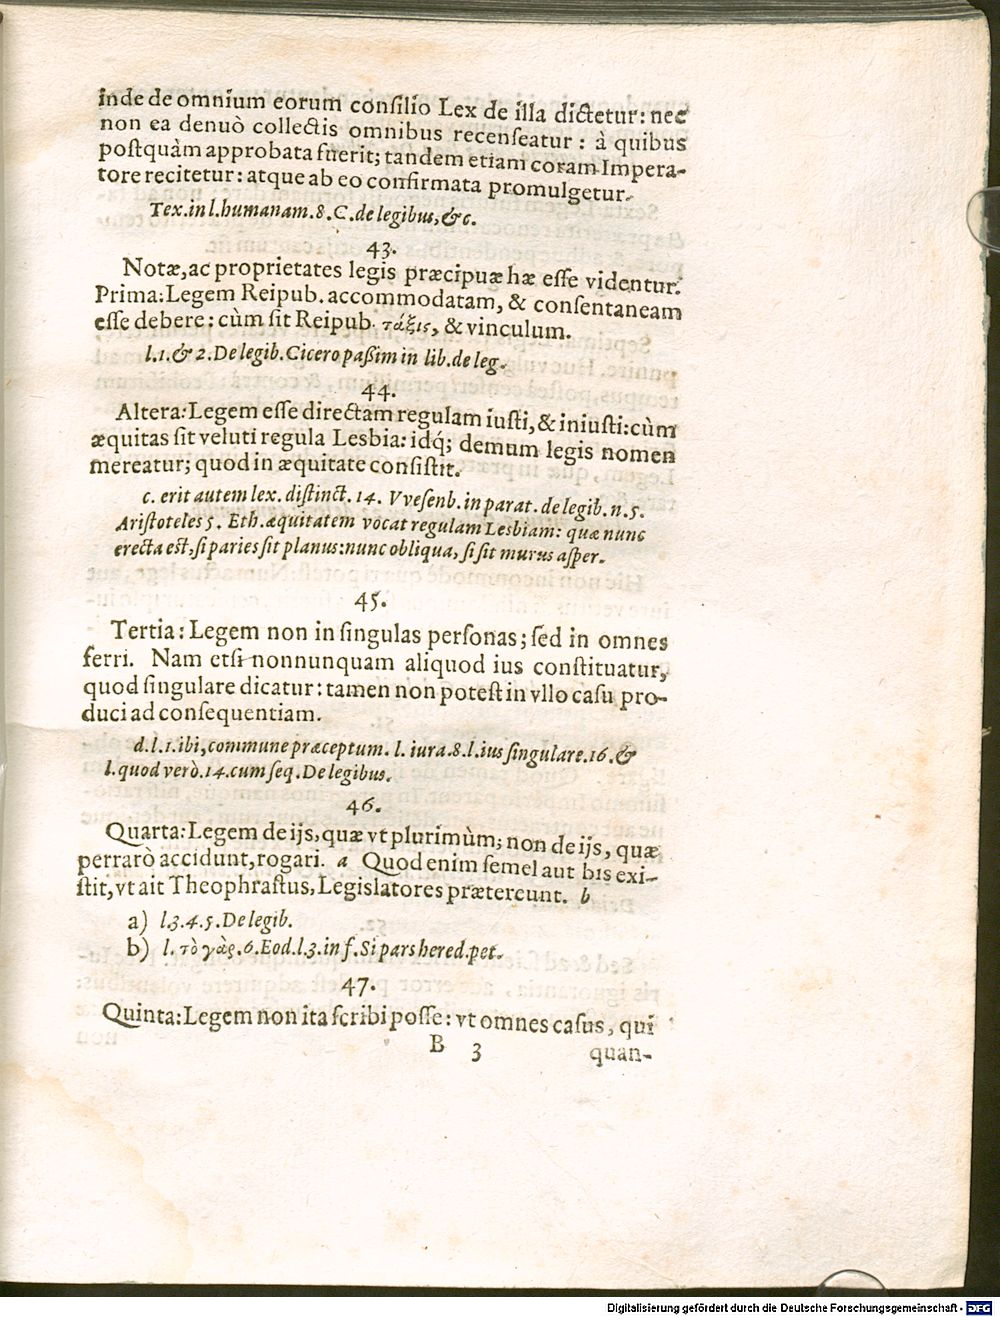 inde de omnium eorum consilio Lex de illa dictetur: nec
non ea denuò collectis omnibus recenseatur: à quibus
postquàm approbata fuerit; tandem etiam coram Impera-
tore recitetur: atque ab eo confirmata promulgetur.
Tex. in l. humanam. 8. C. de legibus, &c.
43.
Notæ, ac proprietates legis præcipuæ hæ esse videntur.
Prima: Legem Reipub. accommodatam, & consentaneam
esse debere: cùm sit Reipub. τάξις, & vinculum.
l. 1. & 2. De legib. Cicero paßim in lib. de leg.
44.
Altera: Legem esse directam regulam iusti, & iniusti: cùm
æquitas sit veluti regula Lesbia: idq́; demum legis nomen
mereatur; quod in æquitate consistit.
c. erit autem lex. distinct. 14. VVesenb. in parat. de legib. n. 5.
Aristoteles 5. Eth. æquitatem vocat regulam Lesbiam: quæ nunc
erecta est, si paries sit planus: nunc obliqua, si sit murus asper.
45.
Tertia: Legem non in singulas personas; sed in omnes
ferri. Nam etsi nonnunquam aliquod ius constituatur,
quod singulare dicatur: tamen non potest in vllo casu pro-
duci ad consequentiam.
d. l. 1. ibi, commune præceptum. l. iura. 8. l. ius singulare. 16. &
l. quod verò. 14. cum seq. De legibus.
46.
Quarta: Legem de ijs, quæ vt plurimùm; non de ijs, quæ
perrarò accidunt, rogari. a Quod enim semel aut bis exi-
stit, vt ait Theophrastus, Legislatores prætereunt. b
a) l. 3. 4. 5. De legib.
b) l. τὸ γὰρ. 6. Eod. l. 3. in f. Si pars hered. pet.
47.
Quinta: Legem non ita scribi posse: vt omnes casus, qui
B 3 quan-
Digitalisierung gefördert durch die Deutsche Forschungsgemeinschaft - DFG